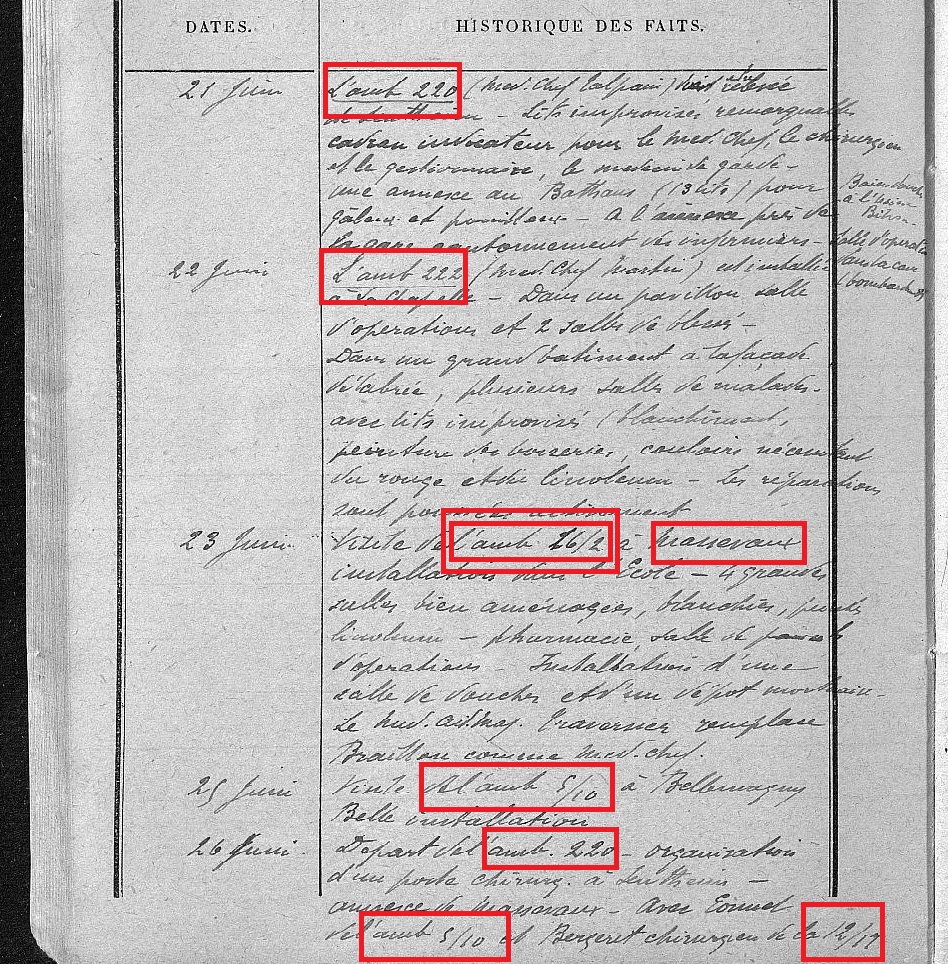 DATES.
HISTORIQUE DES FAITS.
21 Juin
L'amb 220 (med. chef Talpain) relevée
de Sentheim - Lits improvisés remorquable
cadran indicateur pour le med. chef, le chirurgien
et le gestionnaire, le medecin de garde -
une annexe au Bathaus (13 lits) pour
galeux et pouilleux - a l'annexe près de
la gare cantonnement des infirmiers -
salle d'operat
22 Juin
L'amb 222 (med. chef Martin) est installée
à La Chapelle - Dans un pavillon salle
d'operations et 2 salles de blessés -
Dans un grand batiment à la façade
délabrée, plusieurs salles de malades -
avec lits improvisés (blanchiment,
peinture des boiseries, couloirs nécessitant
du rouge et du linoleum - Les réparations
sont poussées activement
23 Juin
Visite de l'amb 16/2 à Massevaux
installation dans l'Ecole - 4 grandes
salles bien aménagées, blanchies, peintes
linoleum - pharmacie, salle de
d'operations - Installation d'une
salle de douches et d'un dépot mortuaire -
Le med. aid. maj. Traversier remplace
Braillon comme med. chef.
25 Juin
Visite de l'amb 5/10 à Bellemagny
Belle installation
26 Juin
Depart de l'amb. 220 - organisation
d'un poste chirurg. à Sentheim -
annexe de Massevaux - Avec
de l'amb 5/10 et Bergeret chirurgien de la 12/17